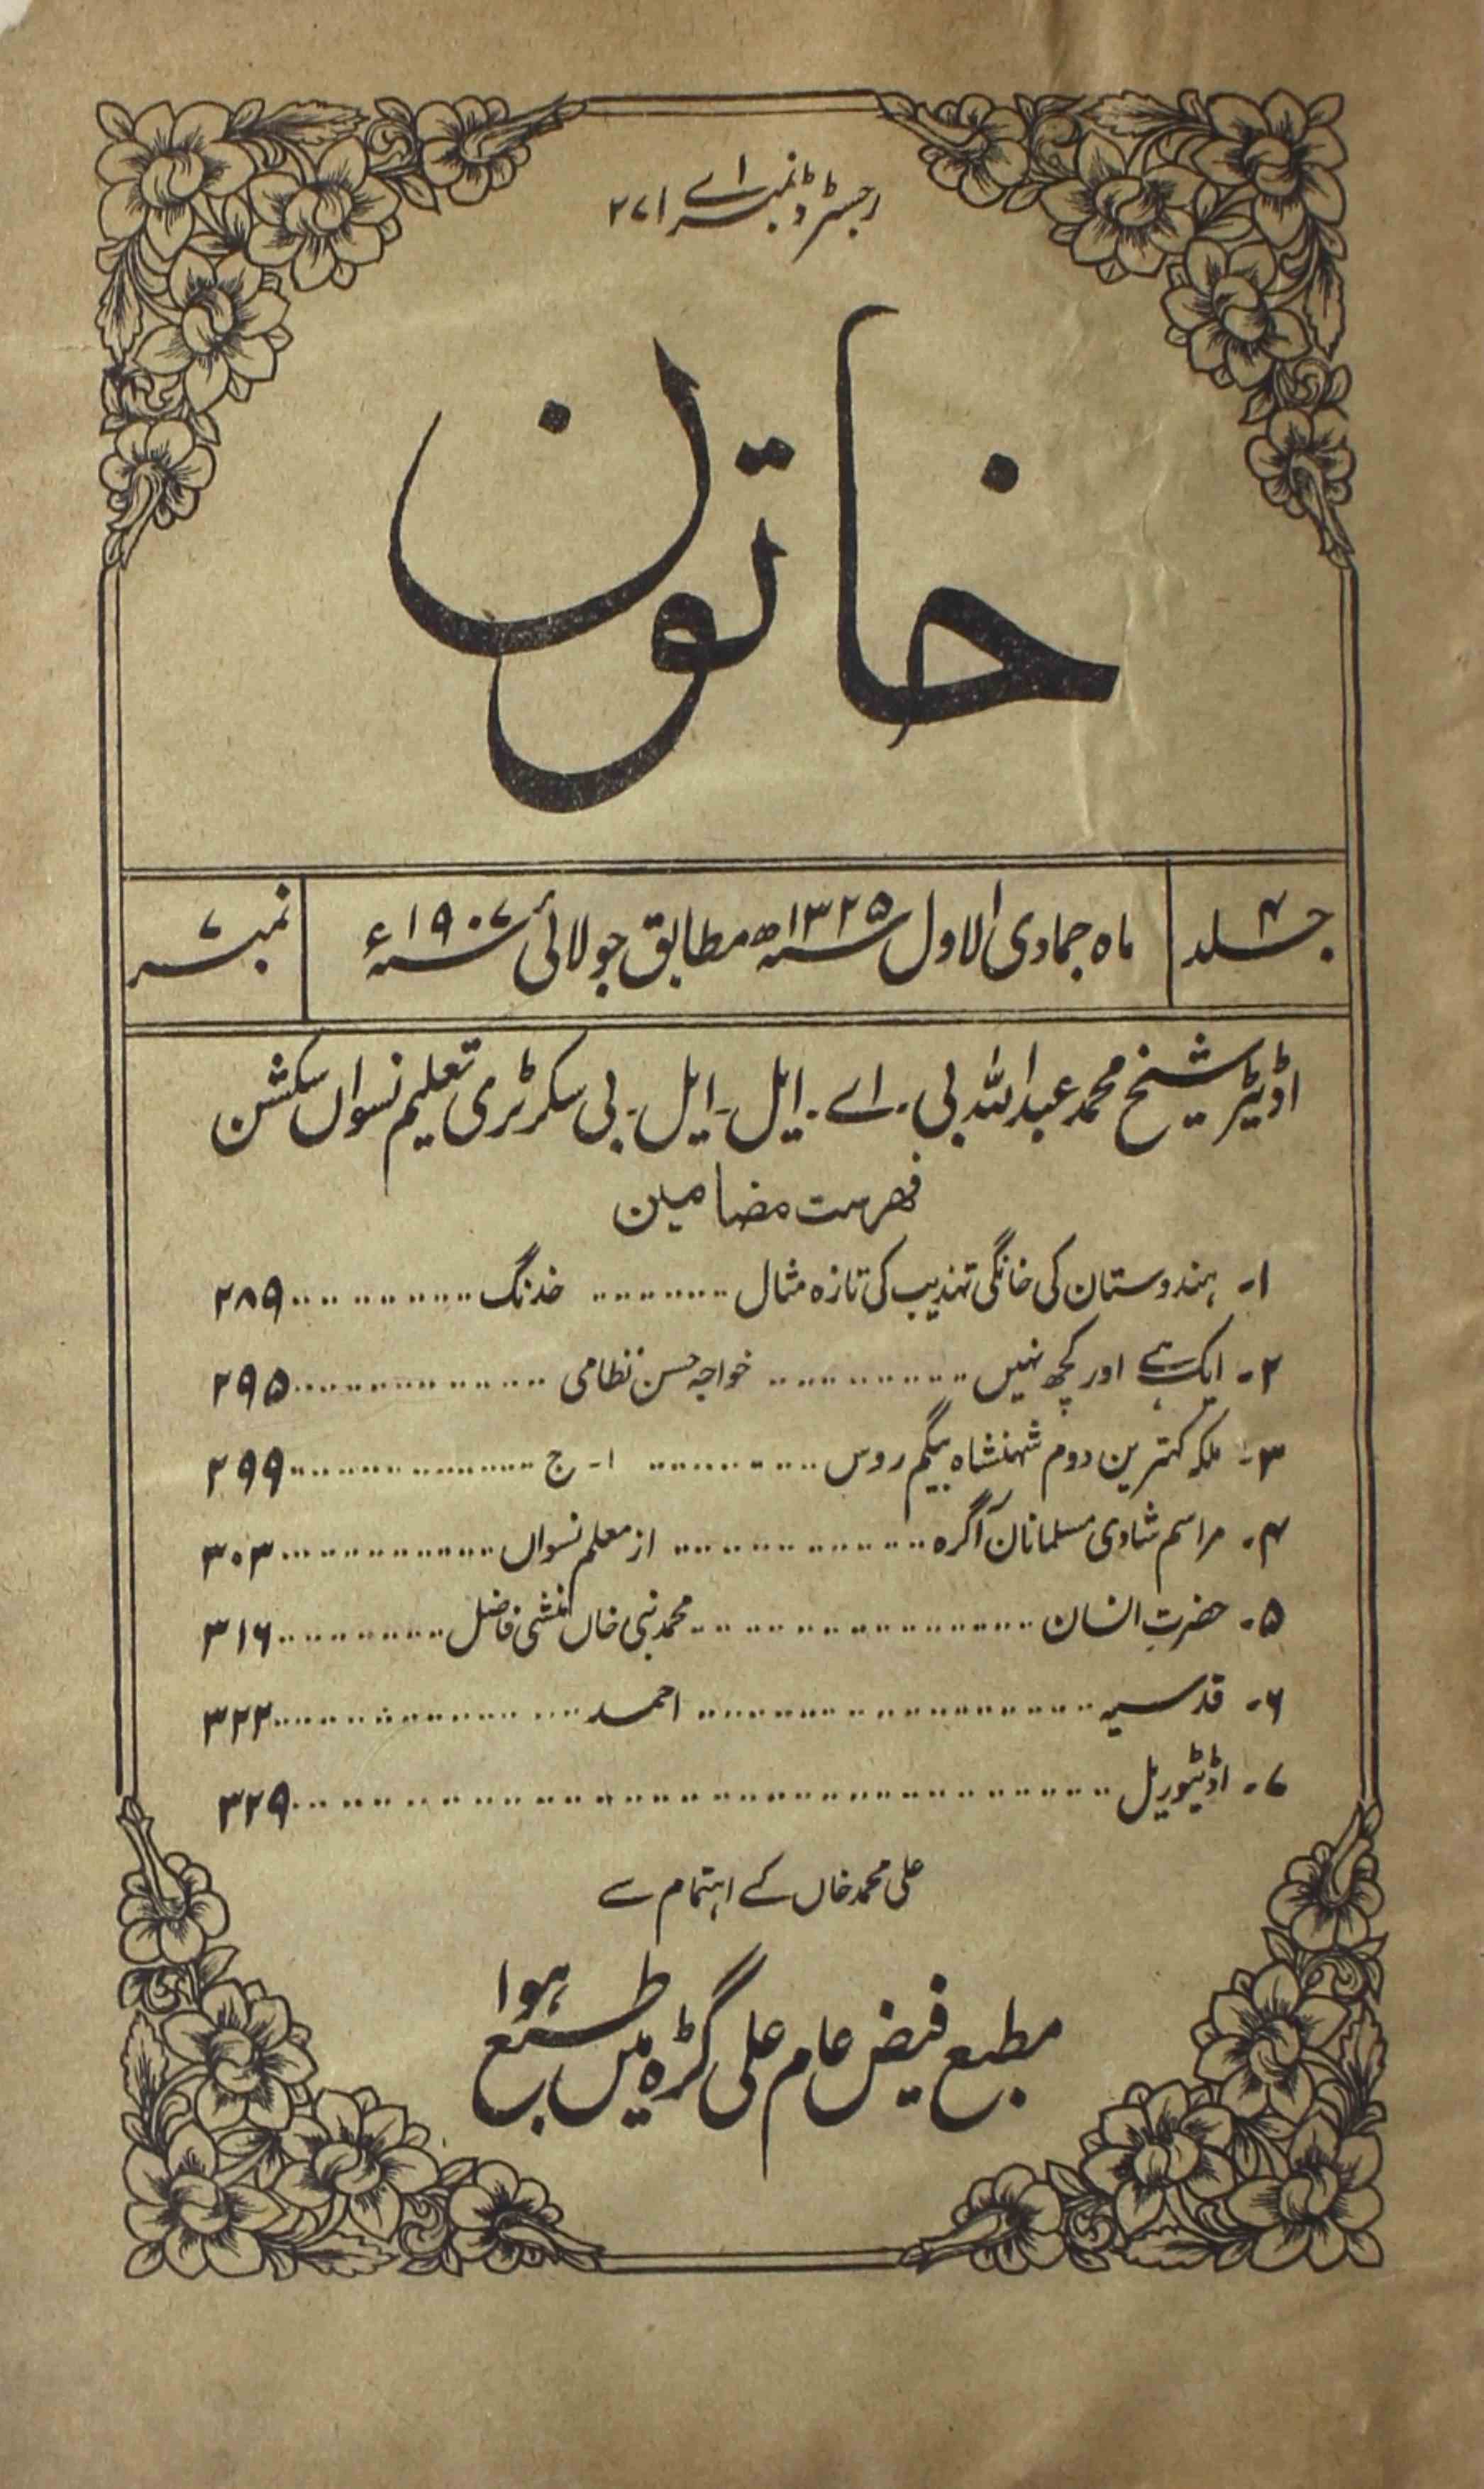 رجسٹرڈ نمبر اے ۲۷۱
خاتون
جلد ۴
ماہ جمادی الاول سنہ ۱۳۲۵ھ مطابق جولائی سنہ ۱۹۰۷ء
نمبر ۷
اڈیٹر شیخ محمد عبداللہ بی۔ اے۔ ایل۔ ایل۔ بی سکرٹری تعلیم نسواں سکشن
فہرست مضامین
۱۔ ہندوستان کی خانگی تہذیب کی تازہ مثال .......... خدنگ .......... ۲۸۹
۲۔ ایک ہے اور کچھ نہیں .......... خواجہ حسن نظامی .......... ۲۹۵
۳۔ ملکہ کہترین دوم شہنشاہ بیگم روس .......... ا۔ ج .......... ۲۹۹
۴۔ مراسم شادی مسلمانان آگرہ .......... از معلم نسواں .......... ۳۰۳
۵۔ حضرتِ انسان .......... محمد نبی خاں منشی فاضل .......... ۳۱۶
۶۔ قدسیہ .......... احمد .......... ۳۲۲
۷۔ اڈیٹوریل .......... ۳۲۹
علی محمد خاں کے اہتمام سے
مطبع فیض عام علی گڑہ میں طبع ہوا